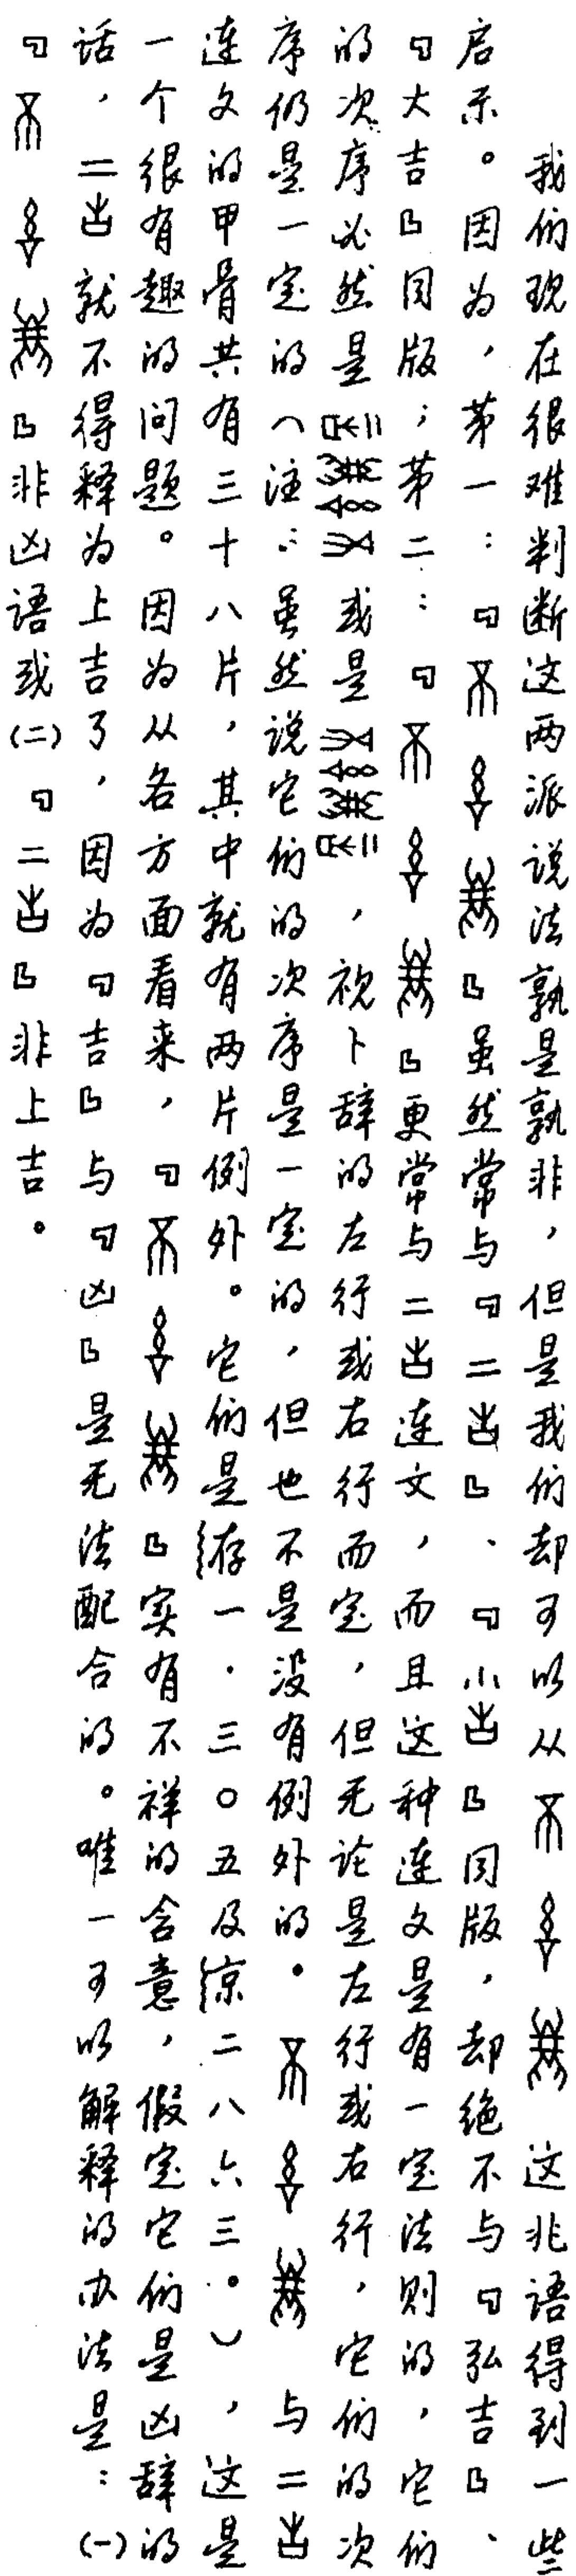 我们现在很难判断这两派说法孰是孰非，但是我们却可以从这兆语得到一些
启示。因为，第一：「」虽然常与「二」、「小」同版，却绝不与「弘吉」、
「大吉」同版；第二：「」更常与二连文，而且这种连文是有一定法则的，它们
的次序必然是或是，视卜辞的左行或右行而定，但无论是左行或右行，它们的次
序仍是一定的（注：虽然说它们的次序是一定的，但也不是没有例外的。与二
连文的甲骨共有三十八片，其中就有两片例外。它们是存一·三〇五及京二八六三。），这是
一个很有趣的问题。因为从各方面看来，「」实有不祥的含意，假定它们是凶辞的
话，二就不得释为上吉了，因为「吉」与「凶」是无法配合的。唯一可以解释的办法是：(一)
「」非凶语或(二)「二」非上吉。